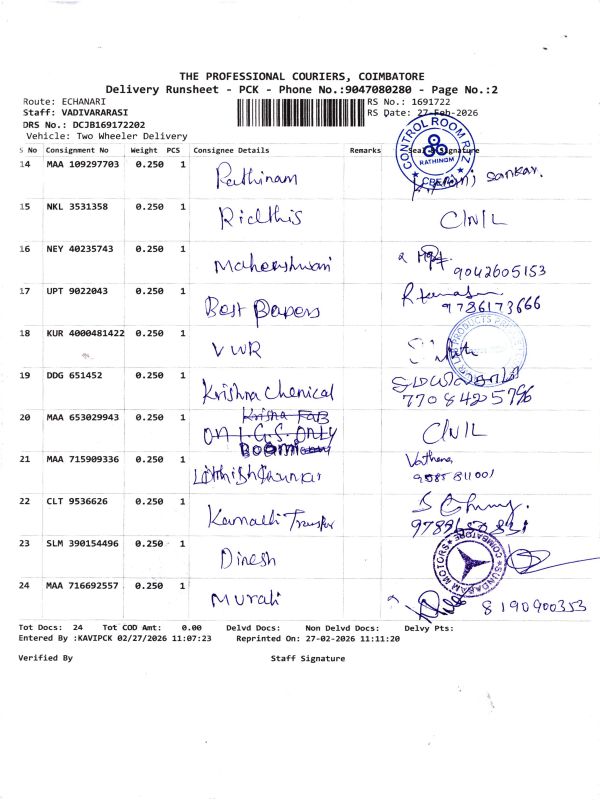 THE PROFESSIONAL COURIERS, COIMBATORE
Delivery Runsheet - PCK - Phone No.:9047080280 - Page No.:2
Route: ECHANARI RS No.: 1691722
Staff: VADIVARARASI RS Date: 27-Feb-2026
DRS No.: DCJB169172202
Vehicle: Two Wheeler Delivery
CONTROL ROOM RATHINAM
S No Consignment No Weight PCS Consignee Details Remarks Seal & Signature
14 MAA 109297703 0.250 1 Rathinam Sankar.
15 NKL 3531358 0.250 1 C/N/L
16 NEY 40235743 0.250 1 Maheshwari 9042605153
17 UPT 9022043 0.250 1 Best Papers 9786173666
18 KUR 4000481422 0.250 1 VWR
19 DDG 651452 0.250 1 Krishna Chemical 7708425796
20 MAA 653029943 0.250 1 Krisha FAB C/N/L
ON I.G.S. ONLY
BOOMI
21 MAA 715909336 0.250 1
22 CLT 9536626 0.250 1
23 SLM 390154496 0.250 1 Dinesh
SUNDARAM MOTORS COIMBATORE
24 MAA 716692557 0.250 1 Murali 8190900353
Tot Docs: 24 Tot COD Amt: 0.00 Delvd Docs: Non Delvd Docs: Delvy Pts:
Entered By :KAVIPCK 02/27/2026 11:07:23 Reprinted On: 27-02-2026 11:11:20
Verified By Staff Signature